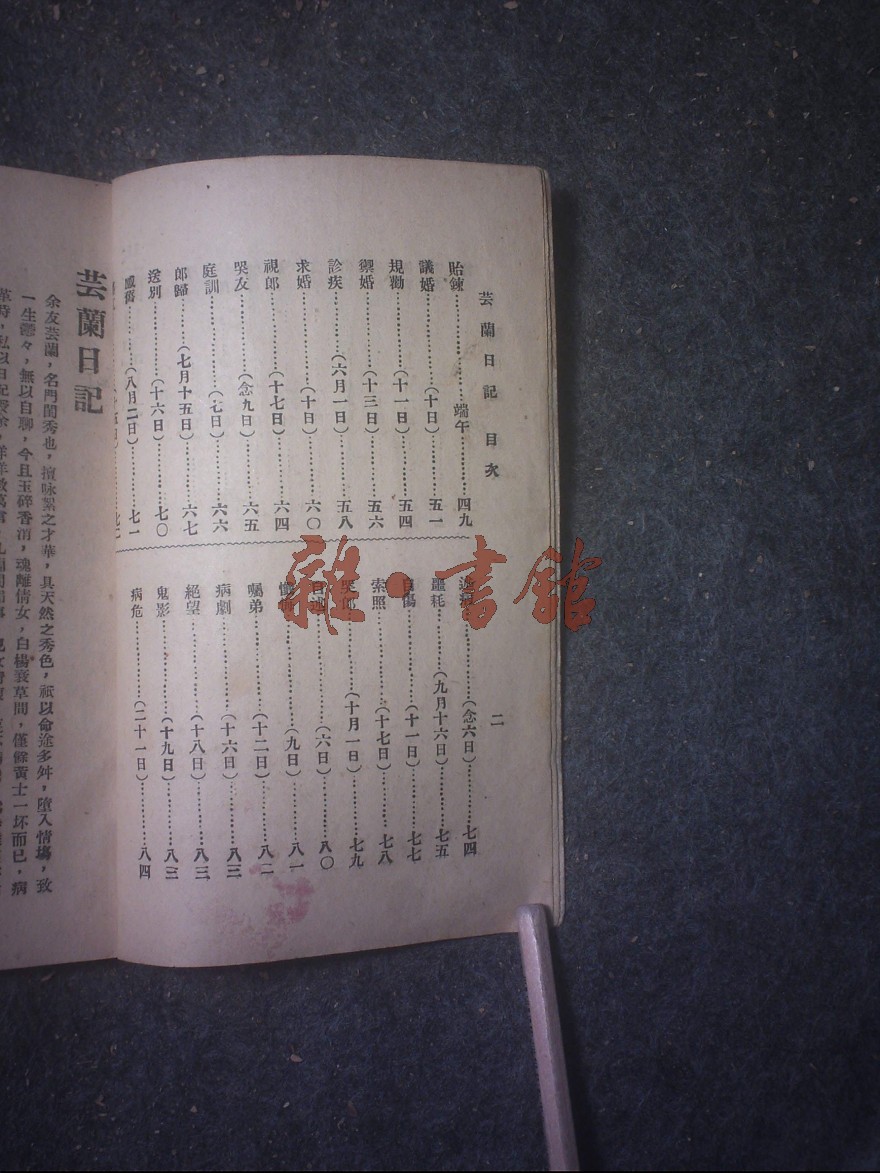 芸蘭日記 目次
二
貽鍊……………端午………四九
議婚………(十日)………五一
規勸………(十一日)………五四
禦婚………(十三日)………五六
診疾………(六月一日)………五八
求婚………(十日)………六〇
視郎………(十七日)………六四
哭友………(念九日)………六五
庭訓………(七日)………六六
郎歸………(七月十五日)………六七
送別………(十六日)………七〇
感舊………(八月二日)………七一
………(念六日)………七四
噩耗………(九月十六日)………七五
自傷………(十一日)………七七
索照………(十七日)………七八
哭郎………(十月一日)………七九
(六日)………八〇
(九日)………八一
囑弟………(十二日)………八二
病劇………(十六日)………八三
絕望………(十八日)………八三
鬼影………(十九日)………八三
病危………(二十一日)………八四
芸蘭日記
余友芸蘭,名門閨秀也,擅咏絮之才華,具天然之秀色,祇以命途多舛,墮入情場,致
一生鬱々,無以自聊,今且玉碎香消,魂離倩女,白楊衰草間,僅餘黃土一坏而已,病
革時,私以日記授余,洋洋數萬言
雜·書館